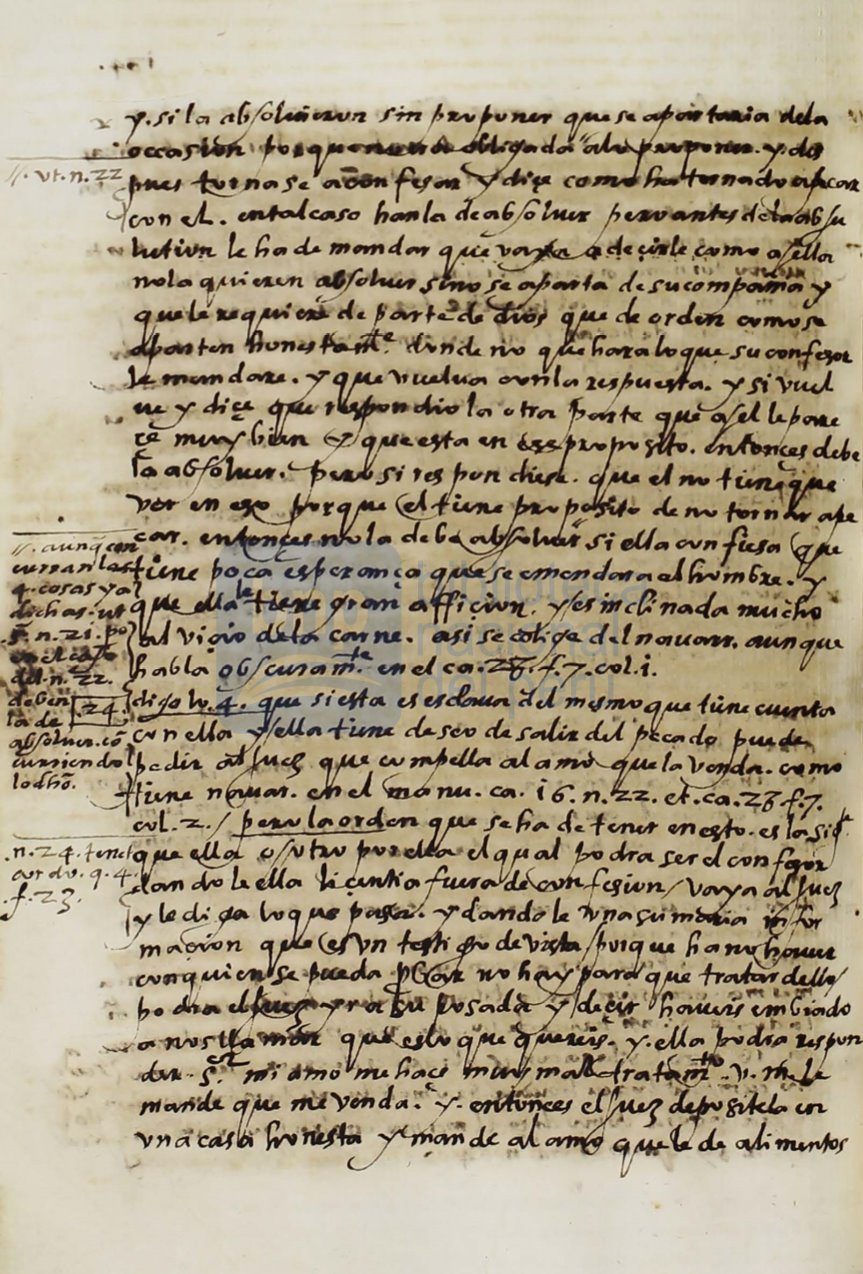 y. si la absolvieron sin proponer que se apartaria dela
occasion porque no era obligada alo proponer. y des
pues torna se a confesar y diçe como ha tornado a pecar
con el. en tal caso hanla de absoluer pero antes dela absu
lution le ha de mandar que vaya a deçirle como a ella
no la quieren absoluer sino se aparta de su compañia y
que le requiere de parte de dios que de orden como se
aparten honestamte. donde no que hara lo que su confesor
le mandare. y que vuelua con la respuesta. y si vuel
ue y diçe que respondio la otra parte que a el le pare
çe muy bien y que esta en ese proposito. entonçes debe
la absoluer. pero si respondiese. que el no tiene que
ver en eso porque el tiene proposito de no tornar a pe
car. entonçes no la debe absoluer si ella confiesa que
tiene poca esperança que se emendara el hombre. y
que ella le tiene gran affiçion. y es inclinada mucho
al viçio dela carne. asi se colige del nauarr. aunque
habla obscuramte. en el ca. 28. f. 7. col. 1.
digo lo. 4. que si esta es esclaua del mesmo que tiene cuenta
con ella y ella tiene deseo de salir del pecado puede
pedir al Juez que compella al amo que la venda. como
tiene nauar. en el manu. ca. 16. n. 22. et. ca. 28. f. 7.
col. 2. / pero la orden que se ha de tener en esto. es la sigte
que ella o otro por ella el qual podra ser el confesor
dandole ella liçentia fuera de confesion / vaya al Juez
y le diga lo que pasa. y dandole una sumaria infor
maçion que es un testigo de vista / porque ha no hauer
con quien se pueda prouar no hay para que tratar dello /
podra el Juez yr a su posada y deçir haueis embiado
a nos llamar que es lo que quereis. y. ella podra respon
der. sr. mi amo me haçe muy mal tratamto. v. m. le
mande que me venda. y. entonçes el Juez deposite la en
una casa honesta y mande al amo que le de alimentos
//. vt. n. 22
//. aunq con
curran las
4. cosas ya
dichas. ut
n. 21. po
en el caso
del n. 22.
deben
la de
24.
absoluer. cō
curriendo
lo dho.
.n. 24. tenet
cordu. q. 4.
f. 23.